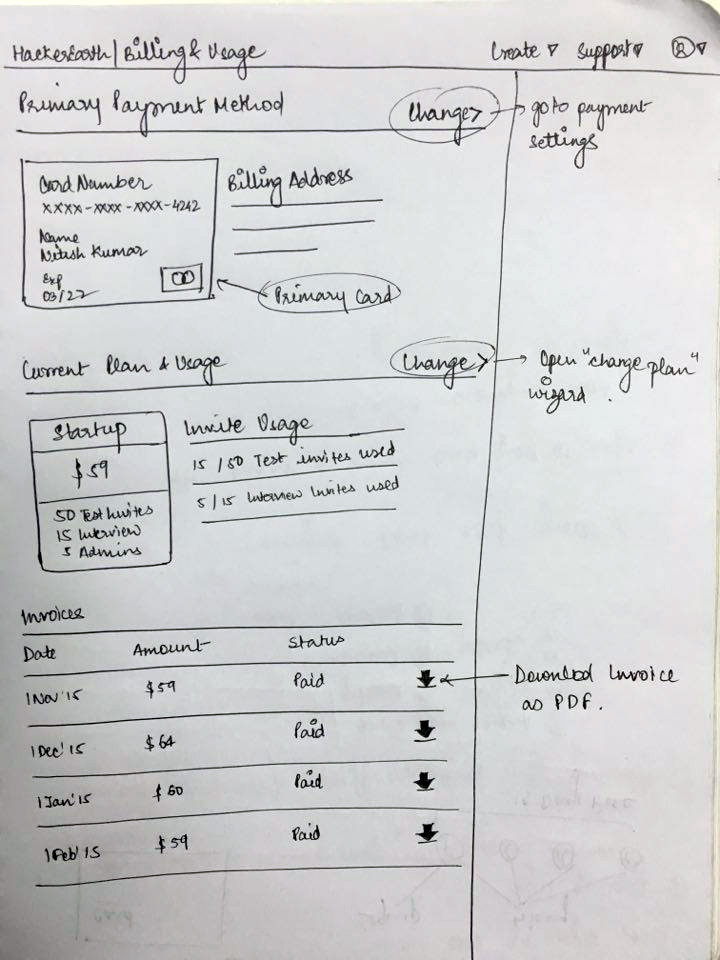 HackerEarth | Billing & Usage
Create ▿ Support ▿ ▿
Primary Payment Method
Change >
go to payment
settings
Card Number
XXXX-XXXX-XXXX-4242
Name
Nitish Kumar
Exp
03/22
Billing Address
Primary Card
Current Plan & Usage
Change >
Open "change plan"
wizard.
Startup
$59
50 Test Invites
15 Interview
5 Admins
Invite Usage
15 / 50 Test invites used
5 / 15 Interview Invites used
Invoices
Date Amount Status
1 Nov '15 $59 Paid
Download Invoice
as PDF.
1 Dec' 15 $64 Paid
1 Jan' 15 $60 Paid
1 Feb' 15 $59 Paid